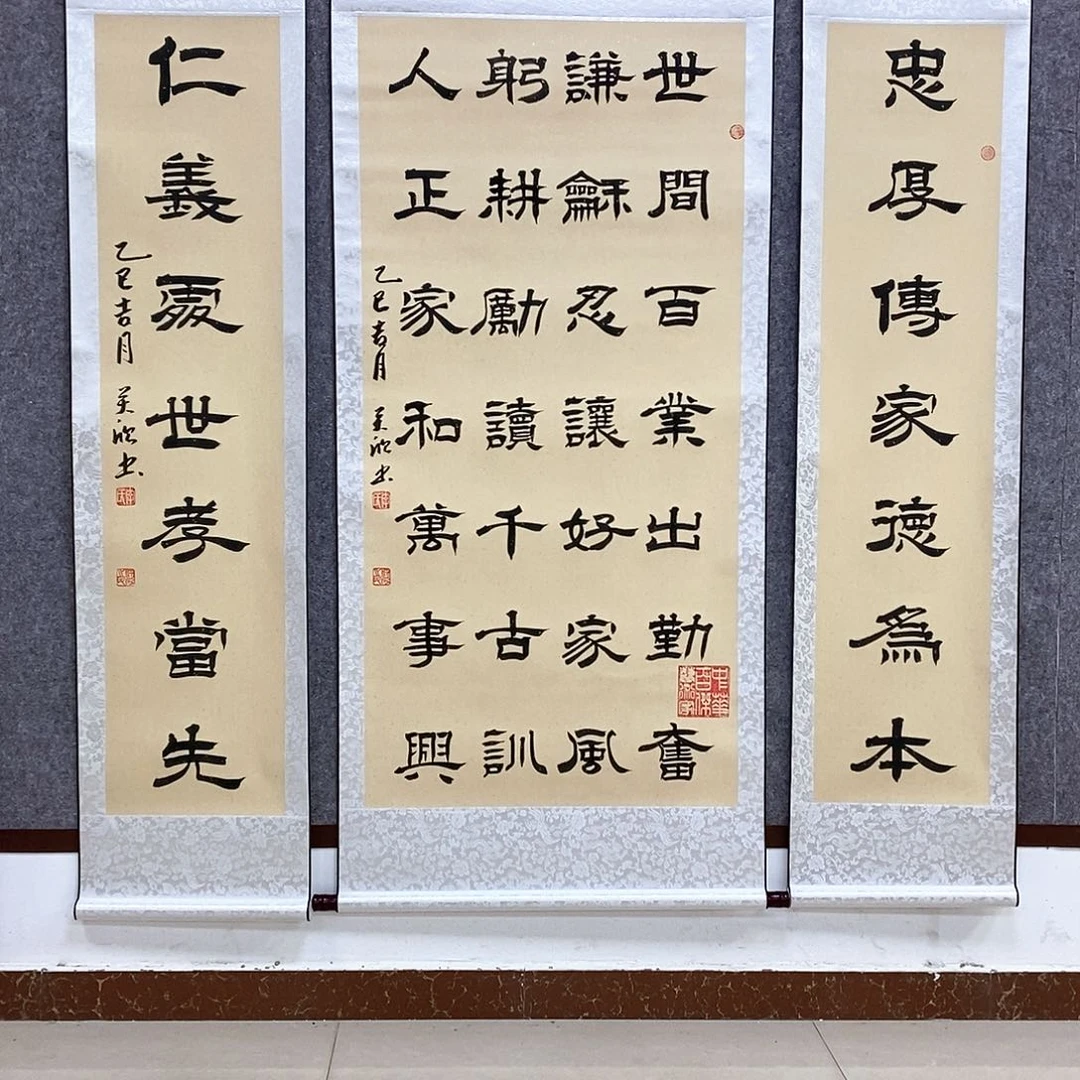 忠厚傳家德爲本
世間百業出勤奮
謙龢忍讓好家風
躬耕勵讀千古訓
人正家和萬事興
乙巳吉月 书
仁義處世孝當先
乙巳吉月 书